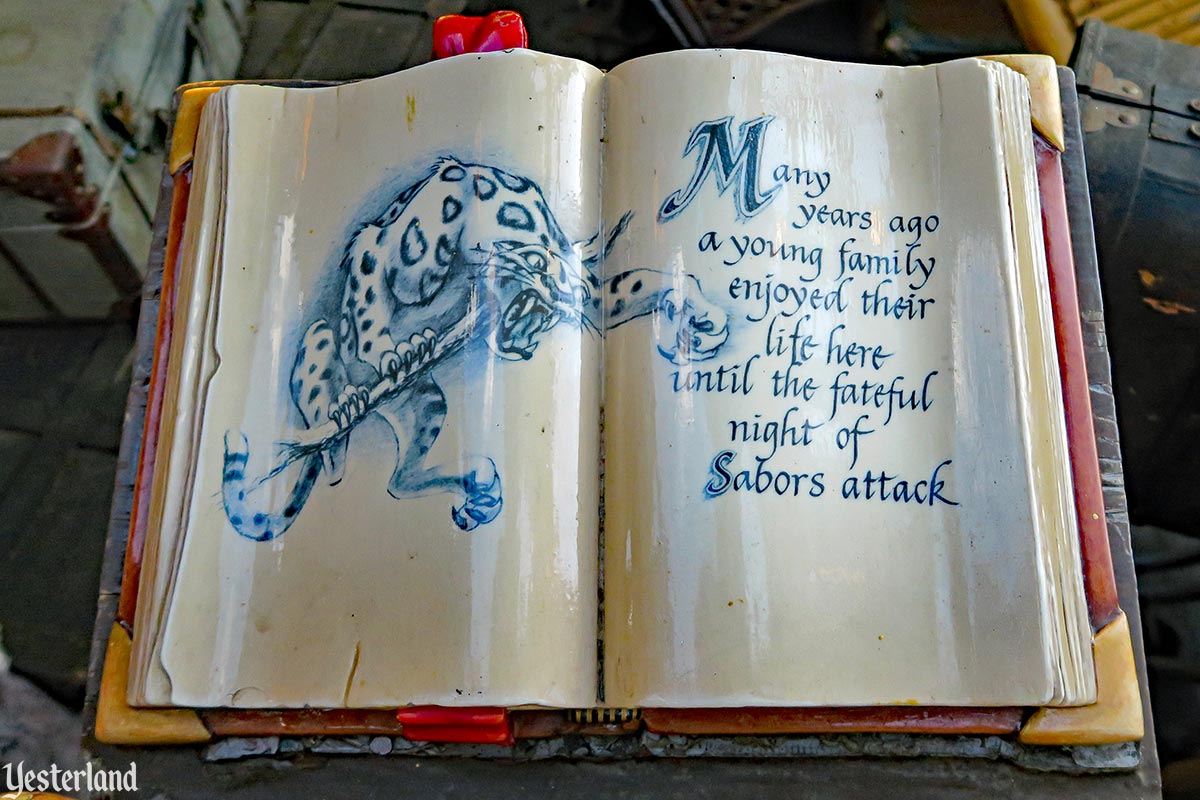 Many
years ago
a young family
enjoyed their
life here
until the fateful
night of
Sabors attack
Yesterland